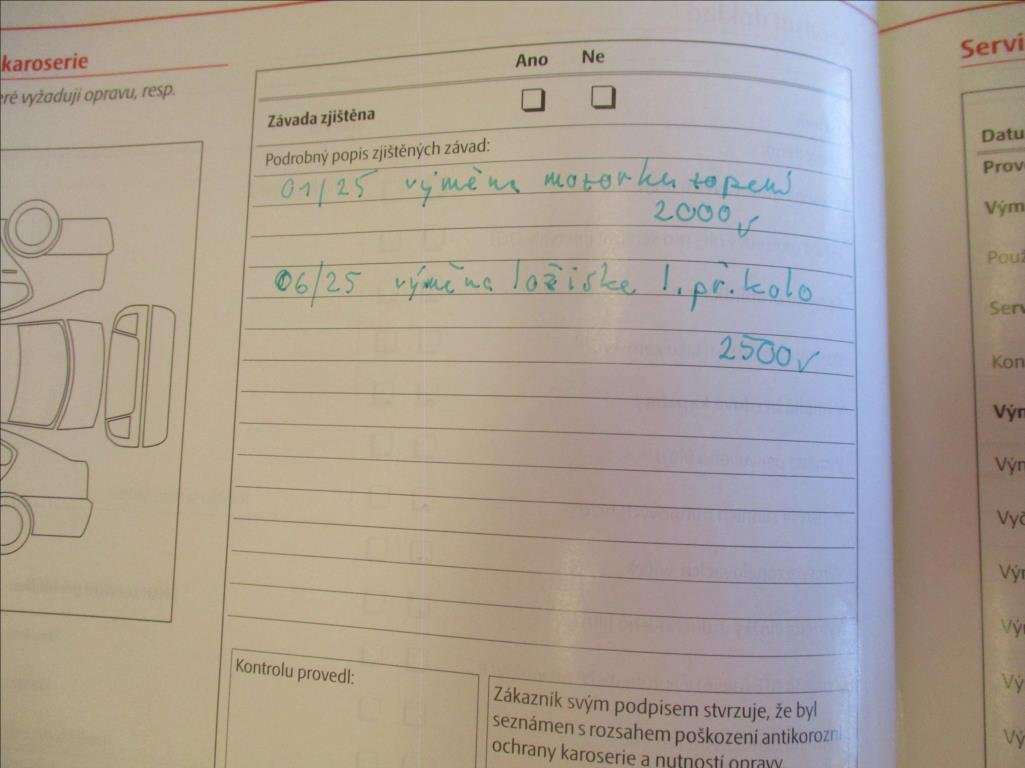 karoserie
eré vyžadují opravu, resp.
Ano Ne
Závada zjištěna
Podrobný popis zjištěných závad:
01/25 výměna motorku topení
2000
06/25 výměna ložiska l. př. kolo
2500
Kontrolu provedl:
Zákazník svým podpisem stvrzuje, že byl
seznámen s rozsahem poškození antikorozní
ochrany karoserie a nutností opravy.
Servi
Datu
Prov
Vým
Použ
Serv
Kon
Vým
Vým
Vyč
Vým
Vým
Vý
Vý